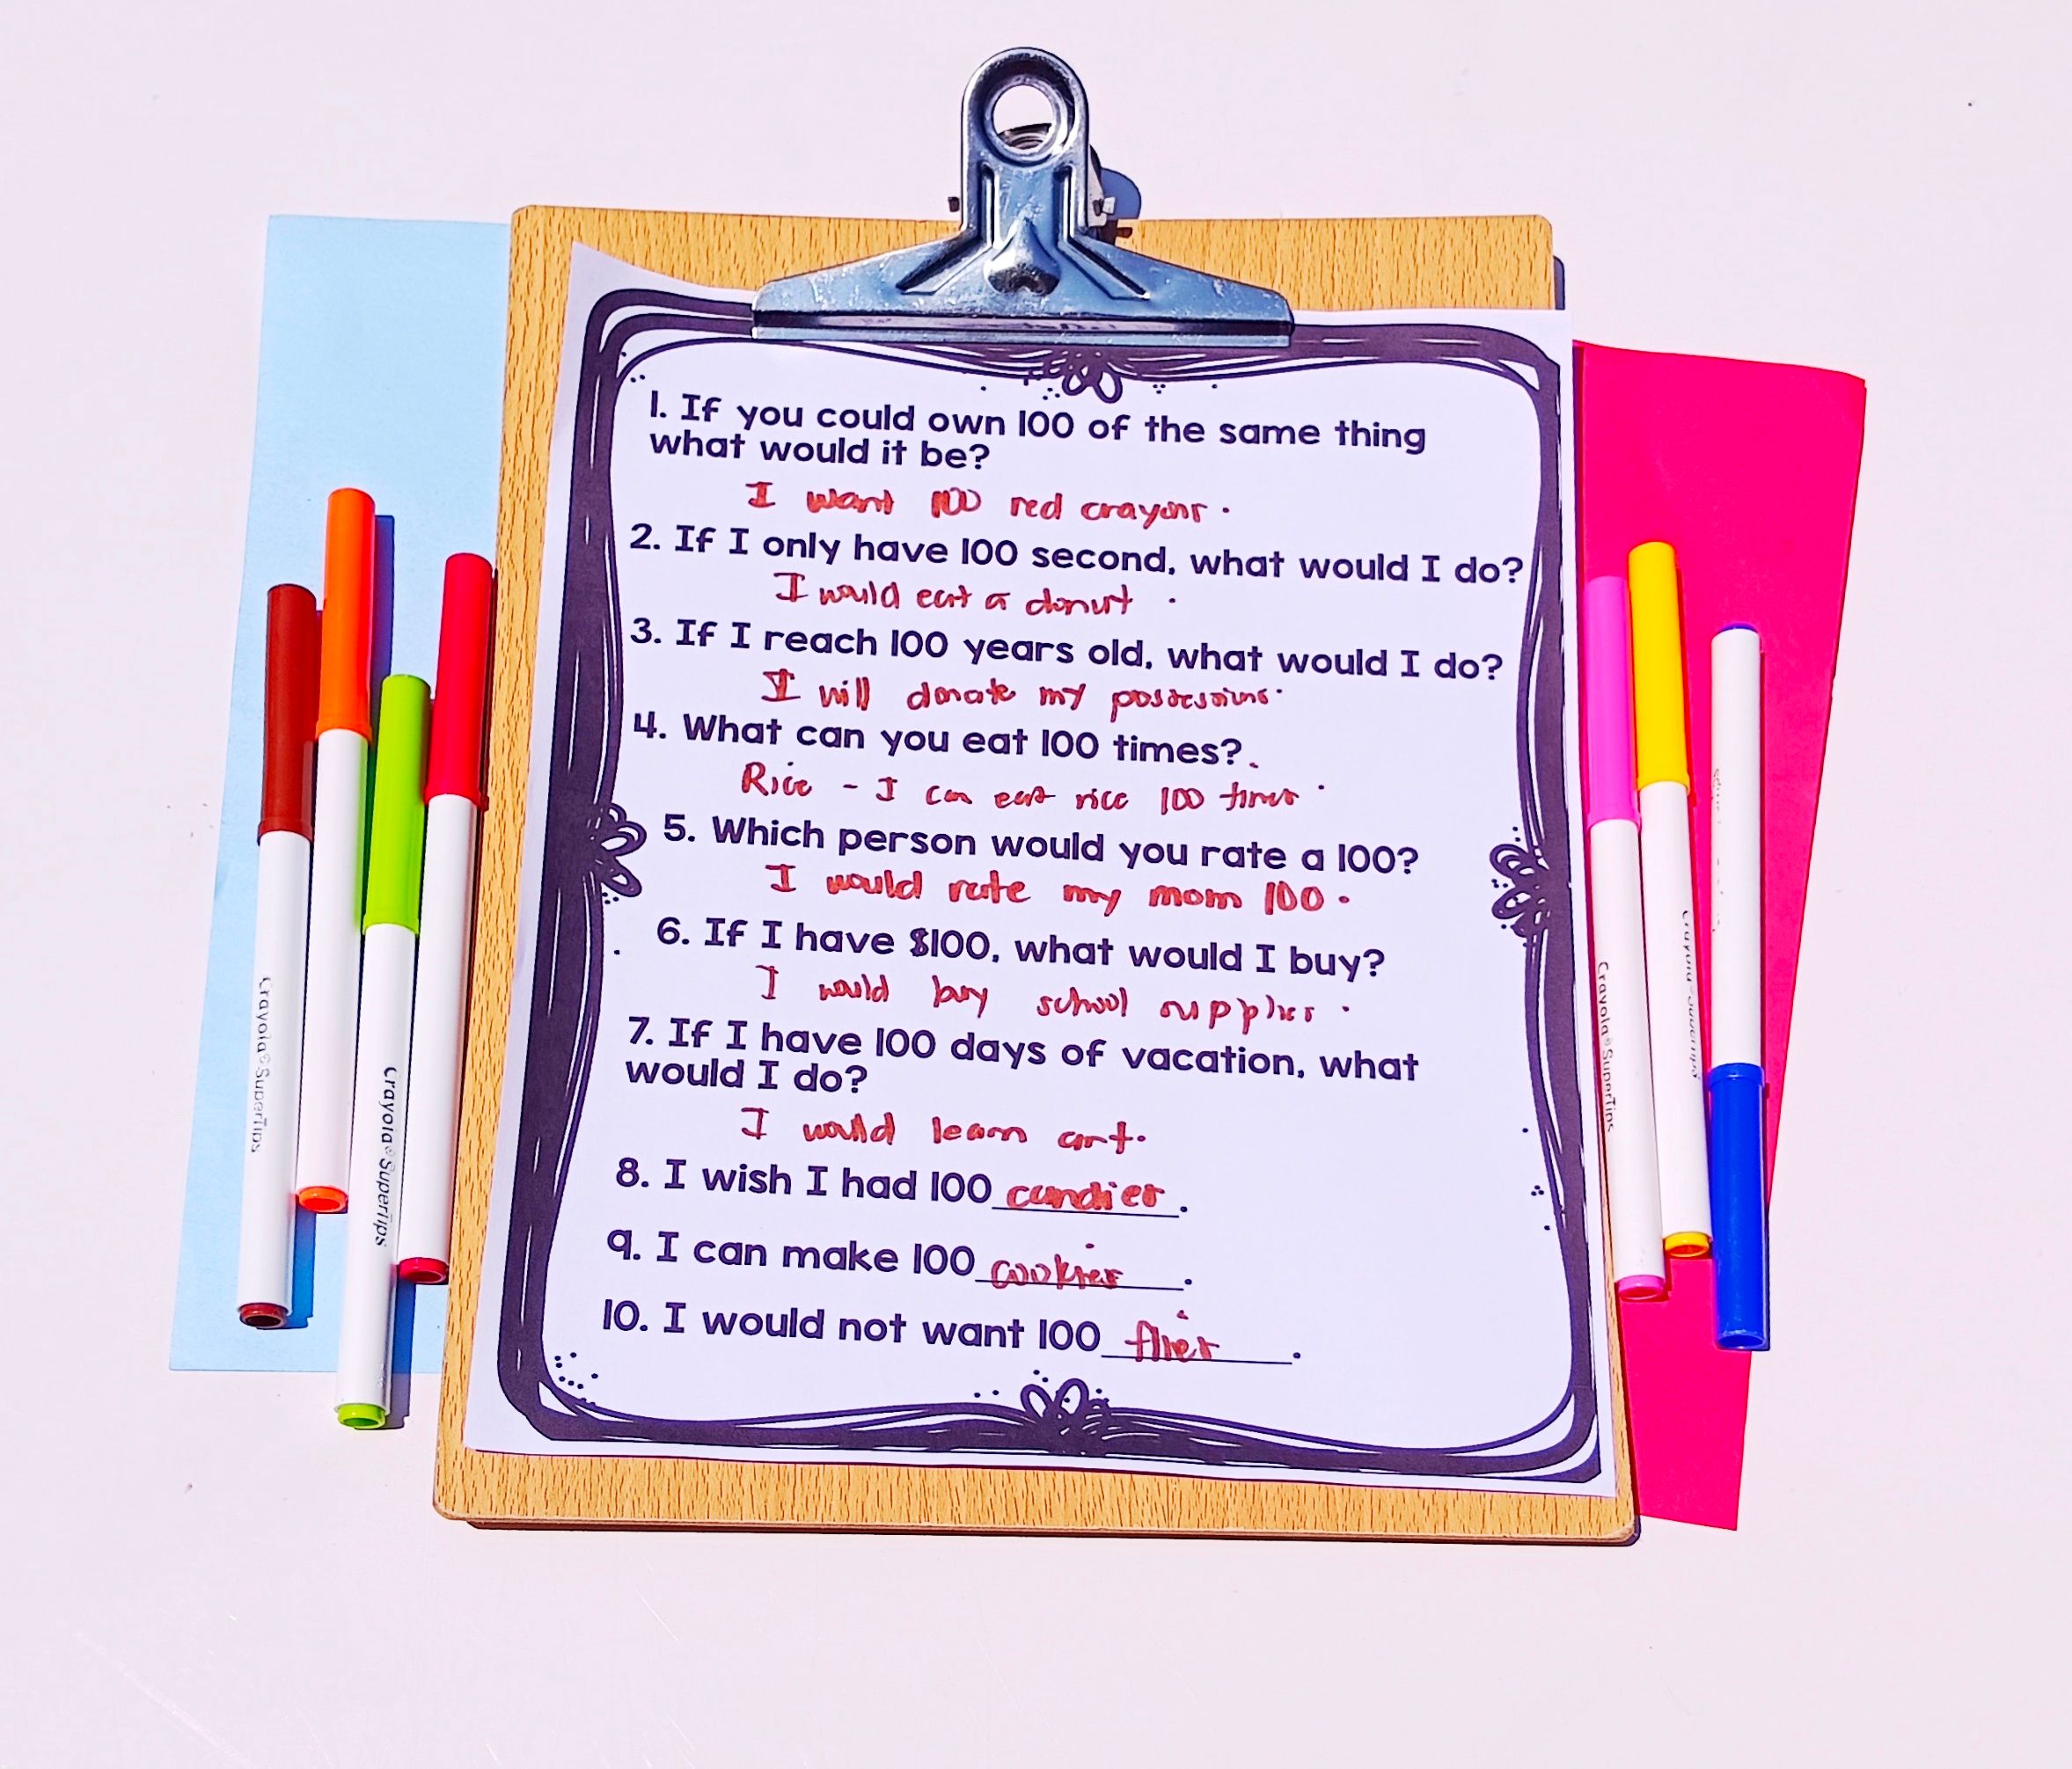 1. If you could own 100 of the same thing
what would it be?
I want 100 red crayons.
2. If I only have 100 second, what would I do?
I would eat a donut.
3. If I reach 100 years old, what would I do?
I will donate my possessions.
4. What can you eat 100 times?.
Rice - I can eat rice 100 times.
5. Which person would you rate a 100?
I would rate my mom 100.
6. If I have $100, what would I buy?
I would buy school supplies.
7. If I have 100 days of vacation, what
would I do?
I would learn art.
8. I wish I had 100 candies.
9. I can make 100 cookies.
10. I would not want 100 flies.
Crayola SuperTips
Crayola SuperTips
Crayola SuperTips